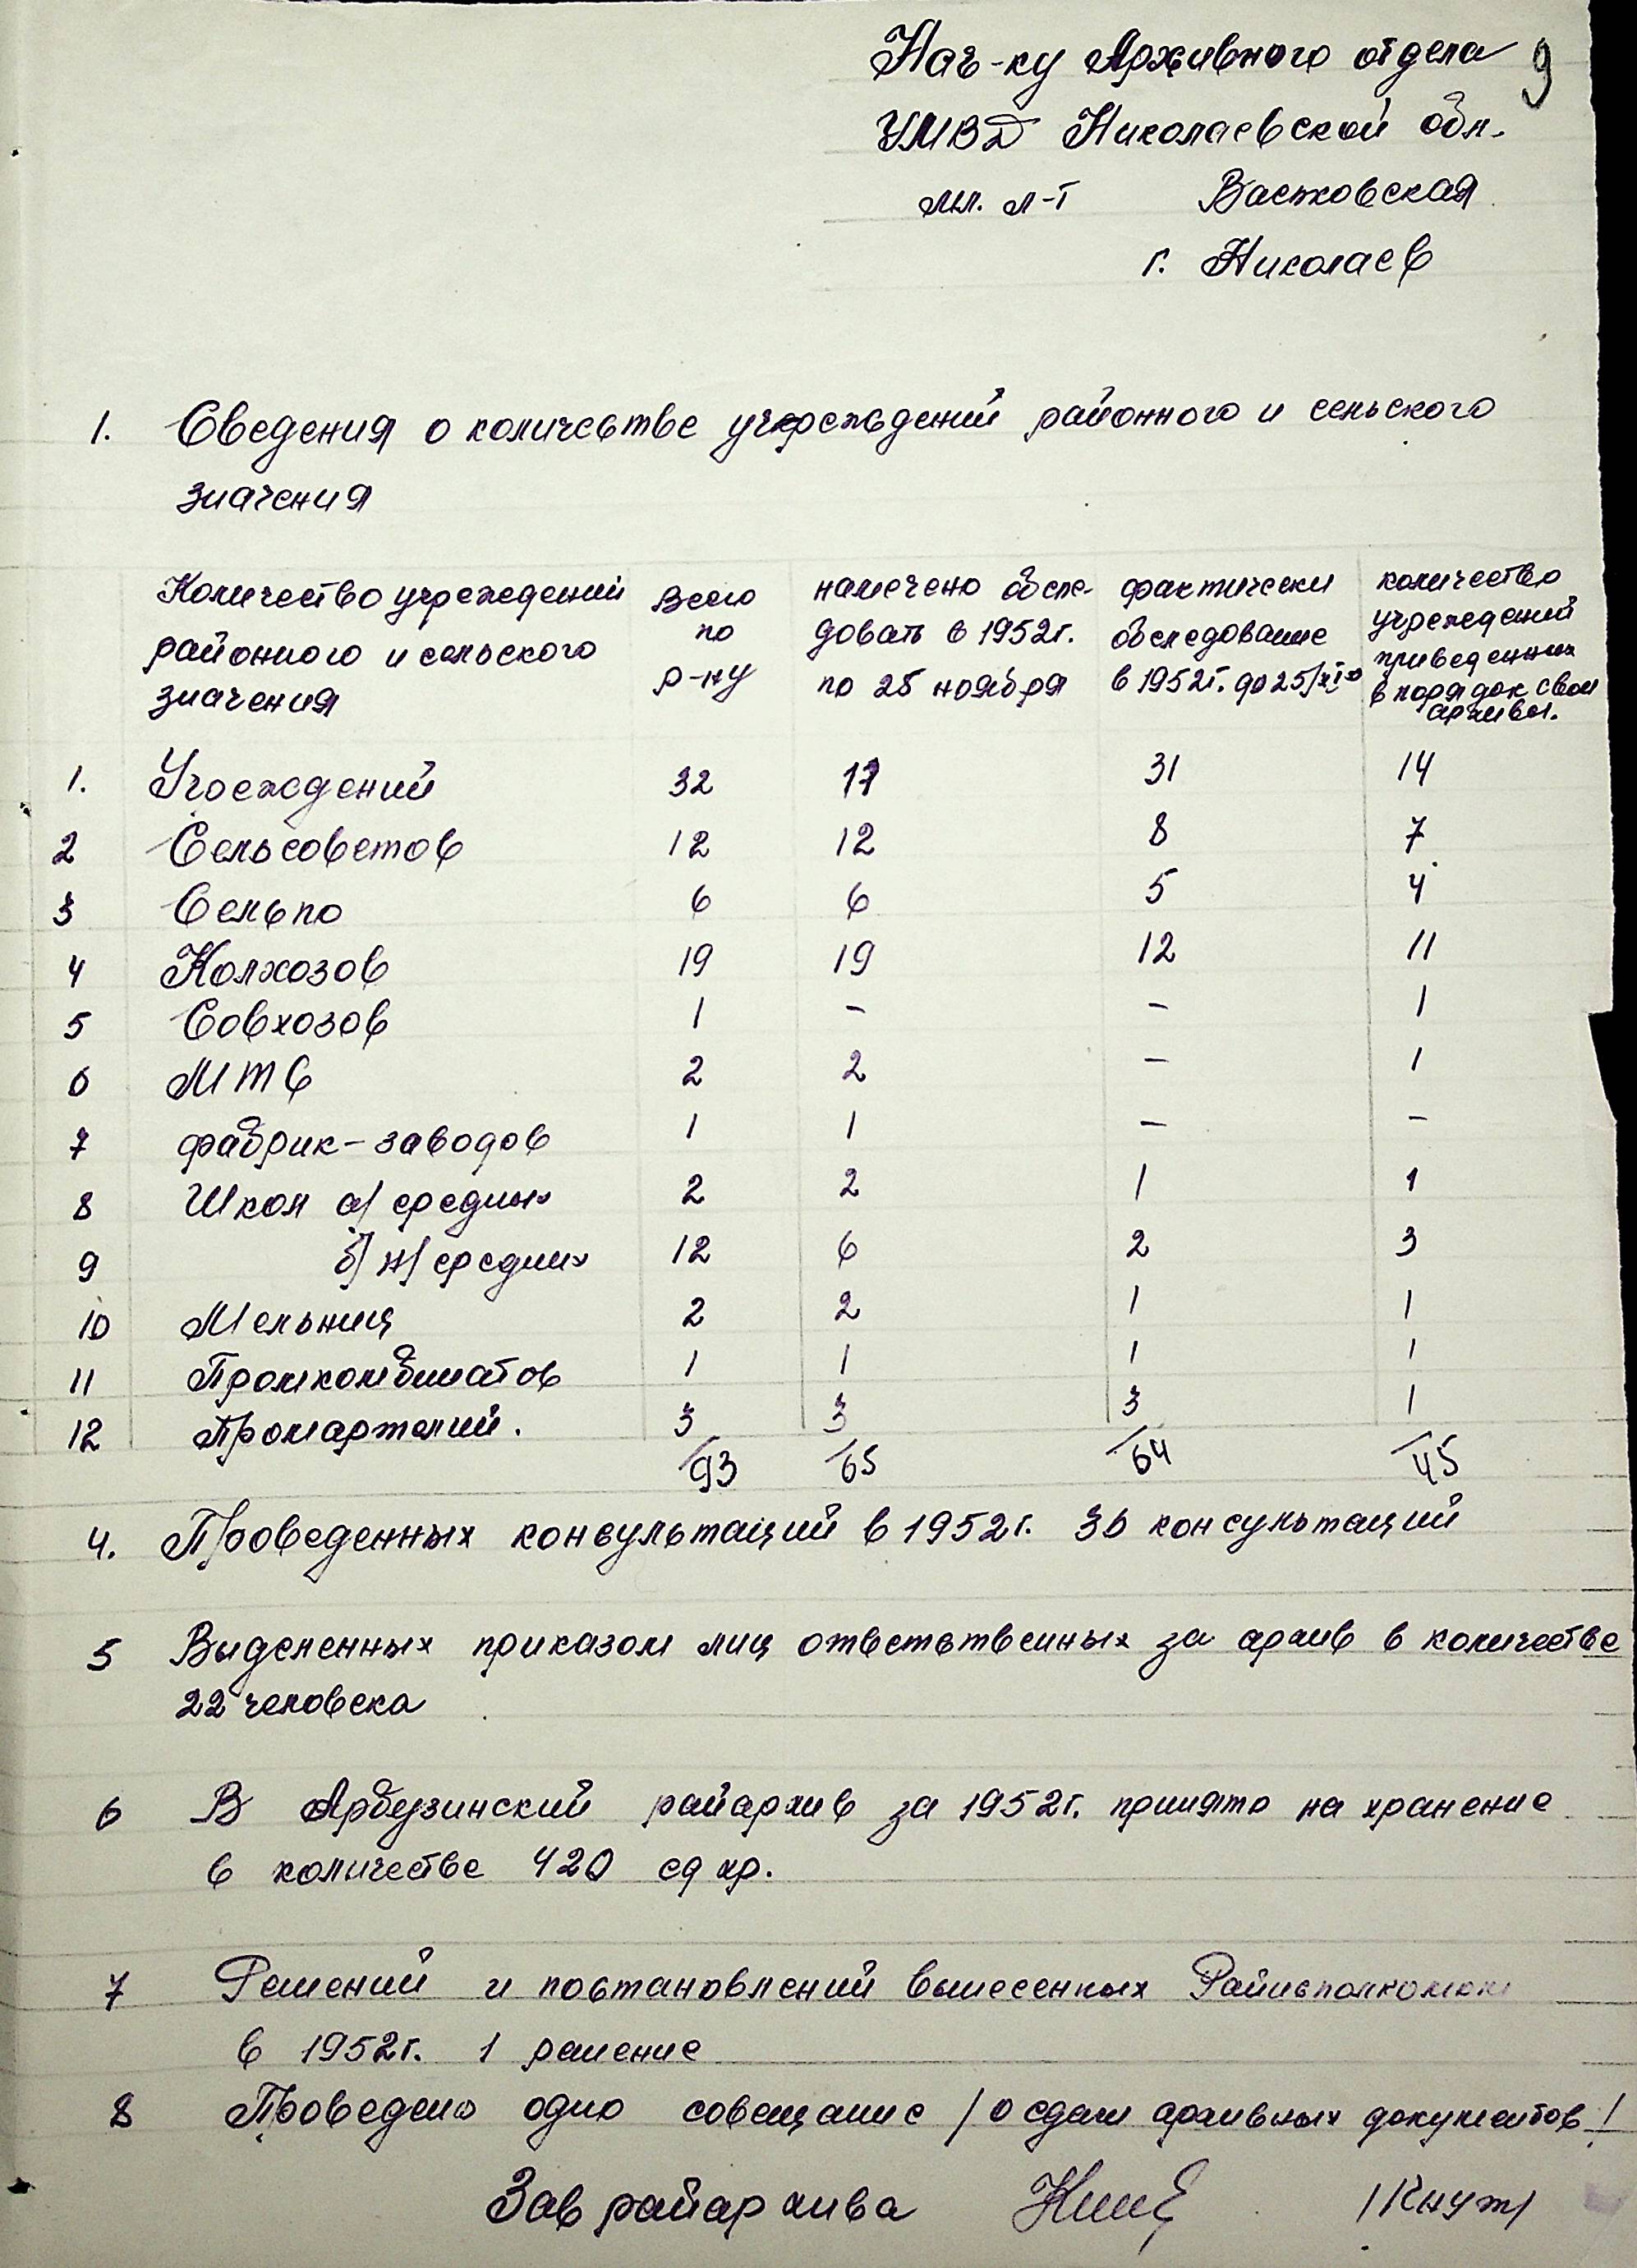 Нач-ку Архивного отдела 9
УМВД Николаевской обл.
мл. л-т Васьковская
г. Николаев
1. Сведения о количестве учреждений районного и сельского
значения
Количество учреждений районного и сельского значения | Всего по р-ну | намечено обсле- довать в 1952г. по 25 ноября | фактически обследование в 1952г. до 25/XI-го | количество учреждений приведенных в порядок свои архивы.
1. Учреждений 32 17 31 14
2 Сельсоветов 12 12 8 7
3 Сельпо 6 6 5 4
4 Колхозов 19 19 12 11
5 Совхозов 1 – – 1
6 МТС 2 2 – 1
7 фабрик-заводов 1 1 – –
8 Школ а/ средних 2 2 1 1
9 б/ н/средних 12 6 2 3
10 Мельниц 2 2 1 1
11 Промкомбинатов 1 1 1 1
12 Промартелий. 3 3 3 1
/93 /65 /64 /45
4. Проведенных консультаций в 1952г. 36 консультаций
5 Выделенных приказом лиц ответственных за архив в количестве
22 человека
6 В Арбузинский райархив за 1952г. принято на хранение
в количестве 420 ед хр.
7 Решений и постановлений вынесенных Райисполкомом
в 1952г. 1 решение
8 Проведено одно совещание /о сдачи архивных документов!
Зав райархива /Кнут/